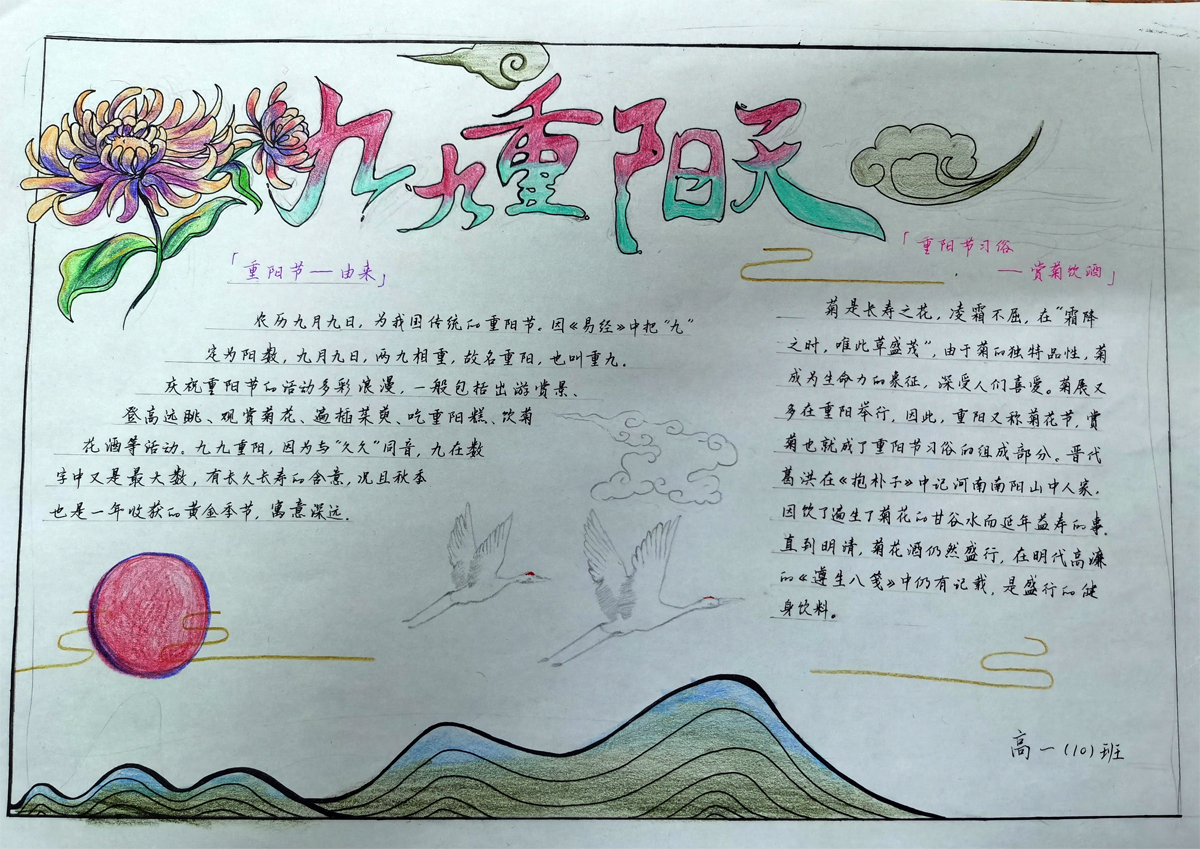 九九重阳天
「重阳节—由来」
农历九月九日，为我国传统的重阳节。因《易经》中把“九”
定为阳数，九月九日，两九相重，故名重阳，也叫重九。
庆祝重阳节的活动多彩浪漫，一般包括出游赏景、
登高远眺、观赏菊花、遍插茱萸、吃重阳糕、饮菊
花酒等活动。九九重阳，因为与“久久”同音，九在数
字中又是最大数，有长久长寿的含意，况且秋季
也是一年收获的黄金季节，寓意深远．
「重阳节习俗
—赏菊饮酒」
菊是长寿之花，凌霜不屈，在“霜降
之时，唯此草盛茂”，由于菊的独特品性，菊
成为生命力的象征，深受人们喜爱。菊展又
多在重阳举行，因此，重阳又称菊花节，赏
菊也就成了重阳节习俗的组成部分。晋代
葛洪在《抱朴子》中记河南南阳山中人家，
因饮了遍生了菊花的甘谷水而延年益寿的事．
直到明清，菊花酒仍然盛行，在明代高濂
的《遵生八笺》中仍有记载，是盛行的健
身饮料。
高一（10）班